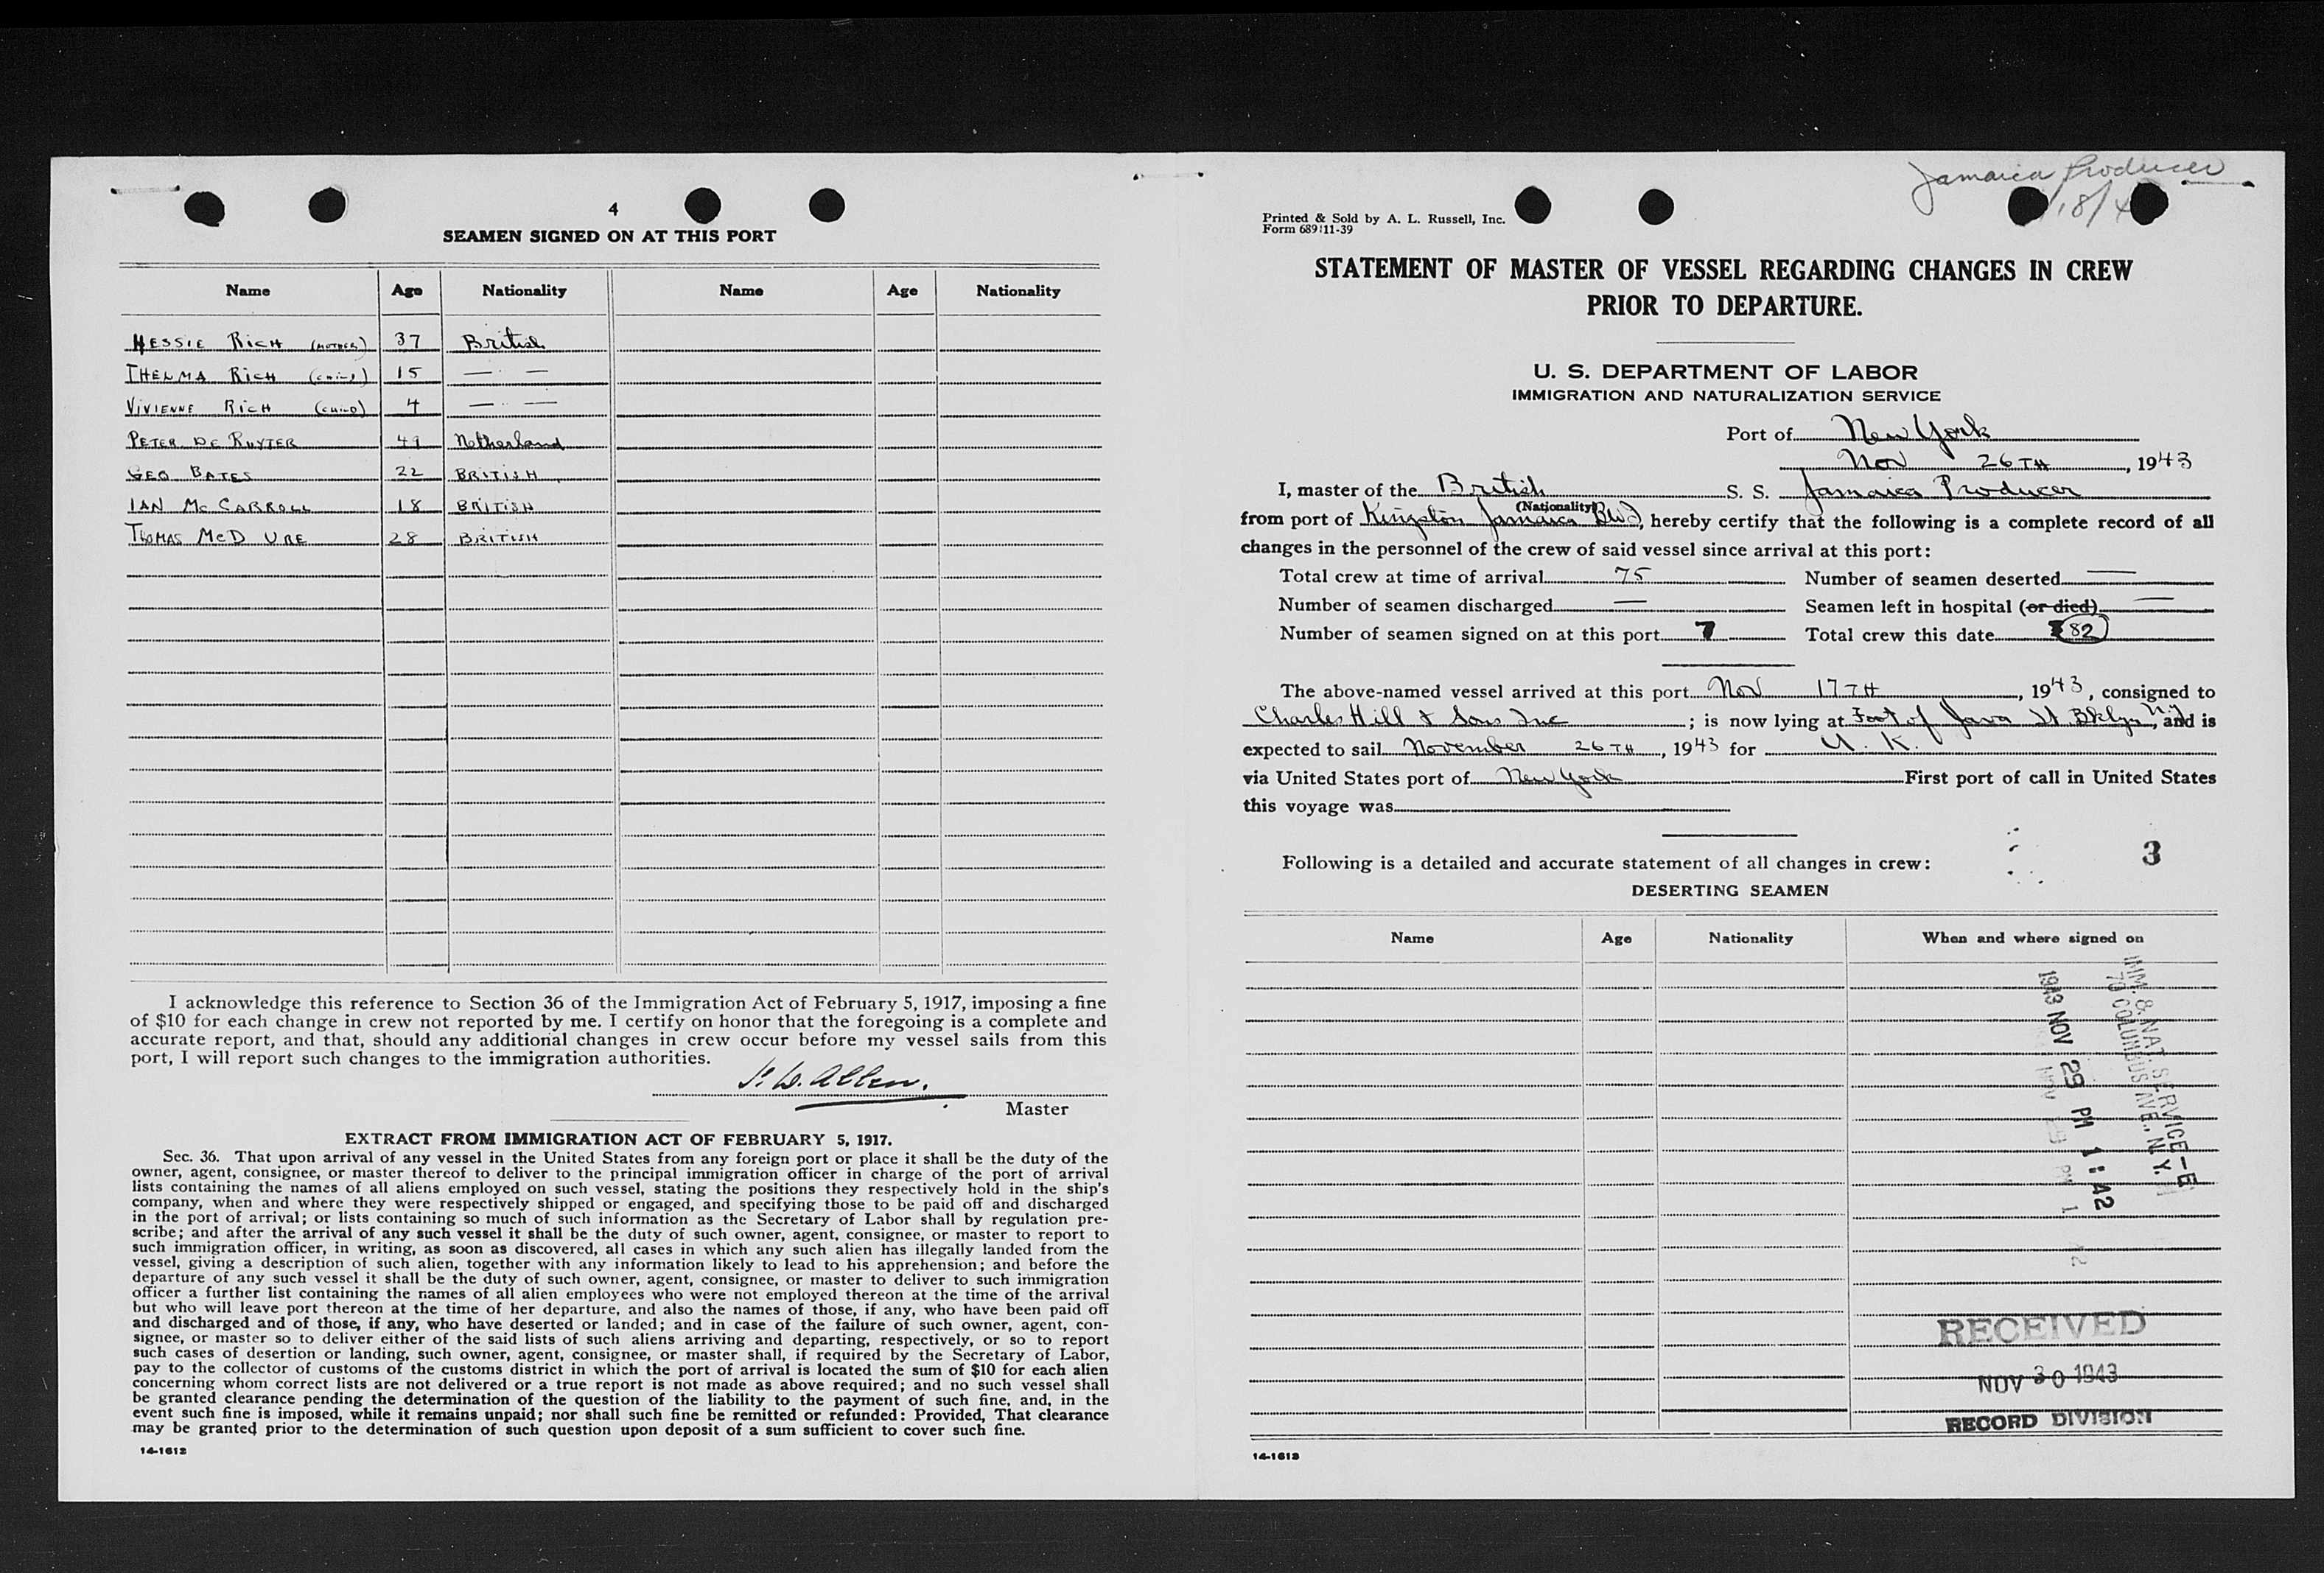 4
SEAMEN SIGNED ON AT THIS PORT
Name Age Nationality Name Age Nationality
HESSIE RICH (MOTHER) 37 British
THELMA RICH (CHILD) 15 — " —
VIVIENNE RICH (CHILD) 4 — " —
PETER DE RUYTER 49 Netherland
GEO BATES 22 BRITISH
IAN Mc CARROLL 18 BRITISH
THOMAS McD URE 28 BRITISH
I acknowledge this reference to Section 36 of the Immigration Act of February 5, 1917, imposing a fine
of $10 for each change in crew not reported by me. I certify on honor that the foregoing is a complete and
accurate report, and that, should any additional changes in crew occur before my vessel sails from this
port, I will report such changes to the immigration authorities.
Allen.
Master
EXTRACT FROM IMMIGRATION ACT OF FEBRUARY 5, 1917.
Sec. 36. That upon arrival of any vessel in the United States from any foreign port or place it shall be the duty of the
owner, agent, consignee, or master thereof to deliver to the principal immigration officer in charge of the port of arrival
lists containing the names of all aliens employed on such vessel, stating the positions they respectively hold in the ship's
company, when and where they were respectively shipped or engaged, and specifying those to be paid off and discharged
in the port of arrival; or lists containing so much of such information as the Secretary of Labor shall by regulation pre-
scribe; and after the arrival of any such vessel it shall be the duty of such owner, agent, consignee, or master to report to
such immigration officer, in writing, as soon as discovered, all cases in which any such alien has illegally landed from the
vessel, giving a description of such alien, together with any information likely to lead to his apprehension; and before the
departure of any such vessel it shall be the duty of such owner, agent, consignee, or master to deliver to such immigration
officer a further list containing the names of all alien employees who were not employed thereon at the time of the arrival
but who will leave port thereon at the time of her departure, and also the names of those, if any, who have been paid off
and discharged and of those, if any, who have deserted or landed; and in case of the failure of such owner, agent, con-
signee, or master so to deliver either of the said lists of such aliens arriving and departing, respectively, or so to report
such cases of desertion or landing, such owner, agent, consignee, or master shall, if required by the Secretary of Labor,
pay to the collector of customs of the customs district in which the port of arrival is located the sum of $10 for each alien
concerning whom correct lists are not delivered or a true report is not made as above required; and no such vessel shall
be granted clearance pending the determination of the question of the liability to the payment of such fine, and, in the
event such fine is imposed, while it remains unpaid; nor shall such fine be remitted or refunded: Provided, That clearance
may be granted prior to the determination of such question upon deposit of a sum sufficient to cover such fine.
14-1612
Jamaica Producer
Printed & Sold by A. L. Russell, Inc.
Form 689 11-39
STATEMENT OF MASTER OF VESSEL REGARDING CHANGES IN CREW
PRIOR TO DEPARTURE.
U. S. DEPARTMENT OF LABOR
IMMIGRATION AND NATURALIZATION SERVICE
Port of New York
Nov 26TH, 1943
I, master of the British S. S. Jamaica Producer
(Nationality)
from port of Kingston Jamaica BWI, hereby certify that the following is a complete record of all
changes in the personnel of the crew of said vessel since arrival at this port:
Total crew at time of arrival 75 Number of seamen deserted —
Number of seamen discharged — Seamen left in hospital (or died) —
Number of seamen signed on at this port 7 Total crew this date 82
The above-named vessel arrived at this port Nov 17TH, 1943, consigned to
Charles Hill & Sons Inc; is now lying at Foot of Java St Bklyn NY, and is
expected to sail November 26TH, 1943 for U. K.
via United States port of New York First port of call in United States
this voyage was
Following is a detailed and accurate statement of all changes in crew:
3
DESERTING SEAMEN
Name Age Nationality When and where signed on
IMM. & NAT. SERVICE-E
70 COLUMBUS AVE., N.Y.
1943 NOV 29 PM 1:42
RECEIVED
NOV 30 1943
RECORD DIVISION
14-1612